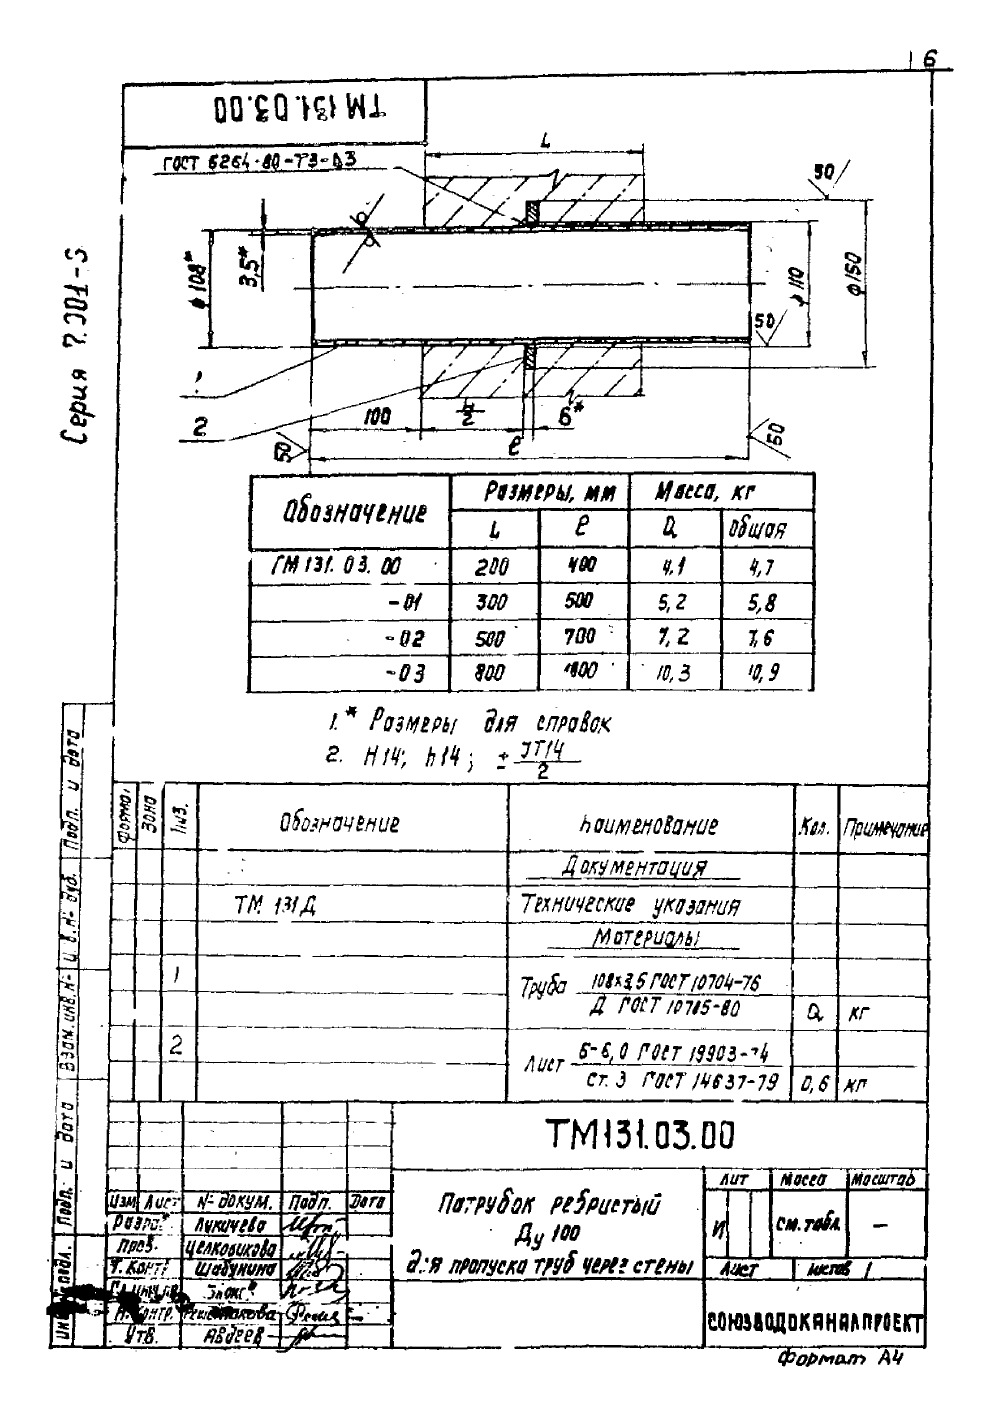 6
ТМ 131.03.00
ГОСТ 5264-80-Т3-Δ3
L
50
Серия 7.901-5
ф 108*
3,5*
ф 110
ф 150
50
1
2
100
L/2
6*
50
ℓ
50
Обозначение Размеры, мм Масса, кг
L ℓ Q Общая
ТМ 131.03.00 200 400 4,1 4,7
-01 300 500 5,2 5,8
-02 500 700 7,2 7,6
-03 800 10,3 10,9
1.* Размеры для справок
2. H14; h14; ± IT14/2
Формат Зона Поз. Обозначение Наименование Кол. Примечание
Документация
ТМ 131 Д Технические указания
Материалы
1 Труба 108х3,5 ГОСТ 10704-76
Д ГОСТ 10705-80 Q кг
2 Лист Б-6,0 ГОСТ 19903-74
Ст. 3 ГОСТ 14637-79 0,6 кг
Подп. и дата
Инв. № дуб.
Взам. инв. №
Подп. и дата
Инв. № подл.
ТМ131.03.00
Изм Лист № докум. Подп. Дата
Разраб. Лукичева
Пров. Целковикова
Т. контр. Шабунина
Н. контр.
Утв. Авдеев
Патрубок ребристый
Ду 100
для пропуска труб через стены
Лит Масса Масштаб
И см. табл. —
Лист Листов 1
СОЮЗВОДОКАНАЛПРОЕКТ
Формат А4